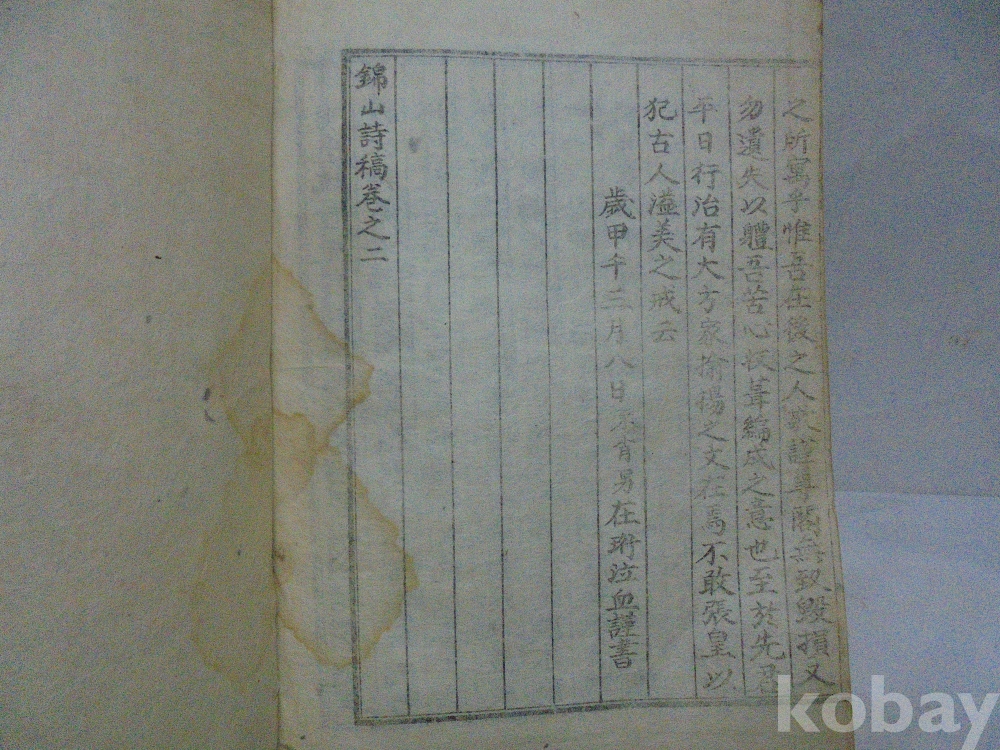 之所寓乎惟吾在後之人敬謹尊閣無致毀損又
勿遺失以軆吾苦心收葺編成之意也至於先君
平日行治有大方家揄揚之文在焉不敢張皇以
犯古人溢美之戒云
歲甲午三月八日不肖男在珩泣血謹書
錦山詩稿卷之二
kobay